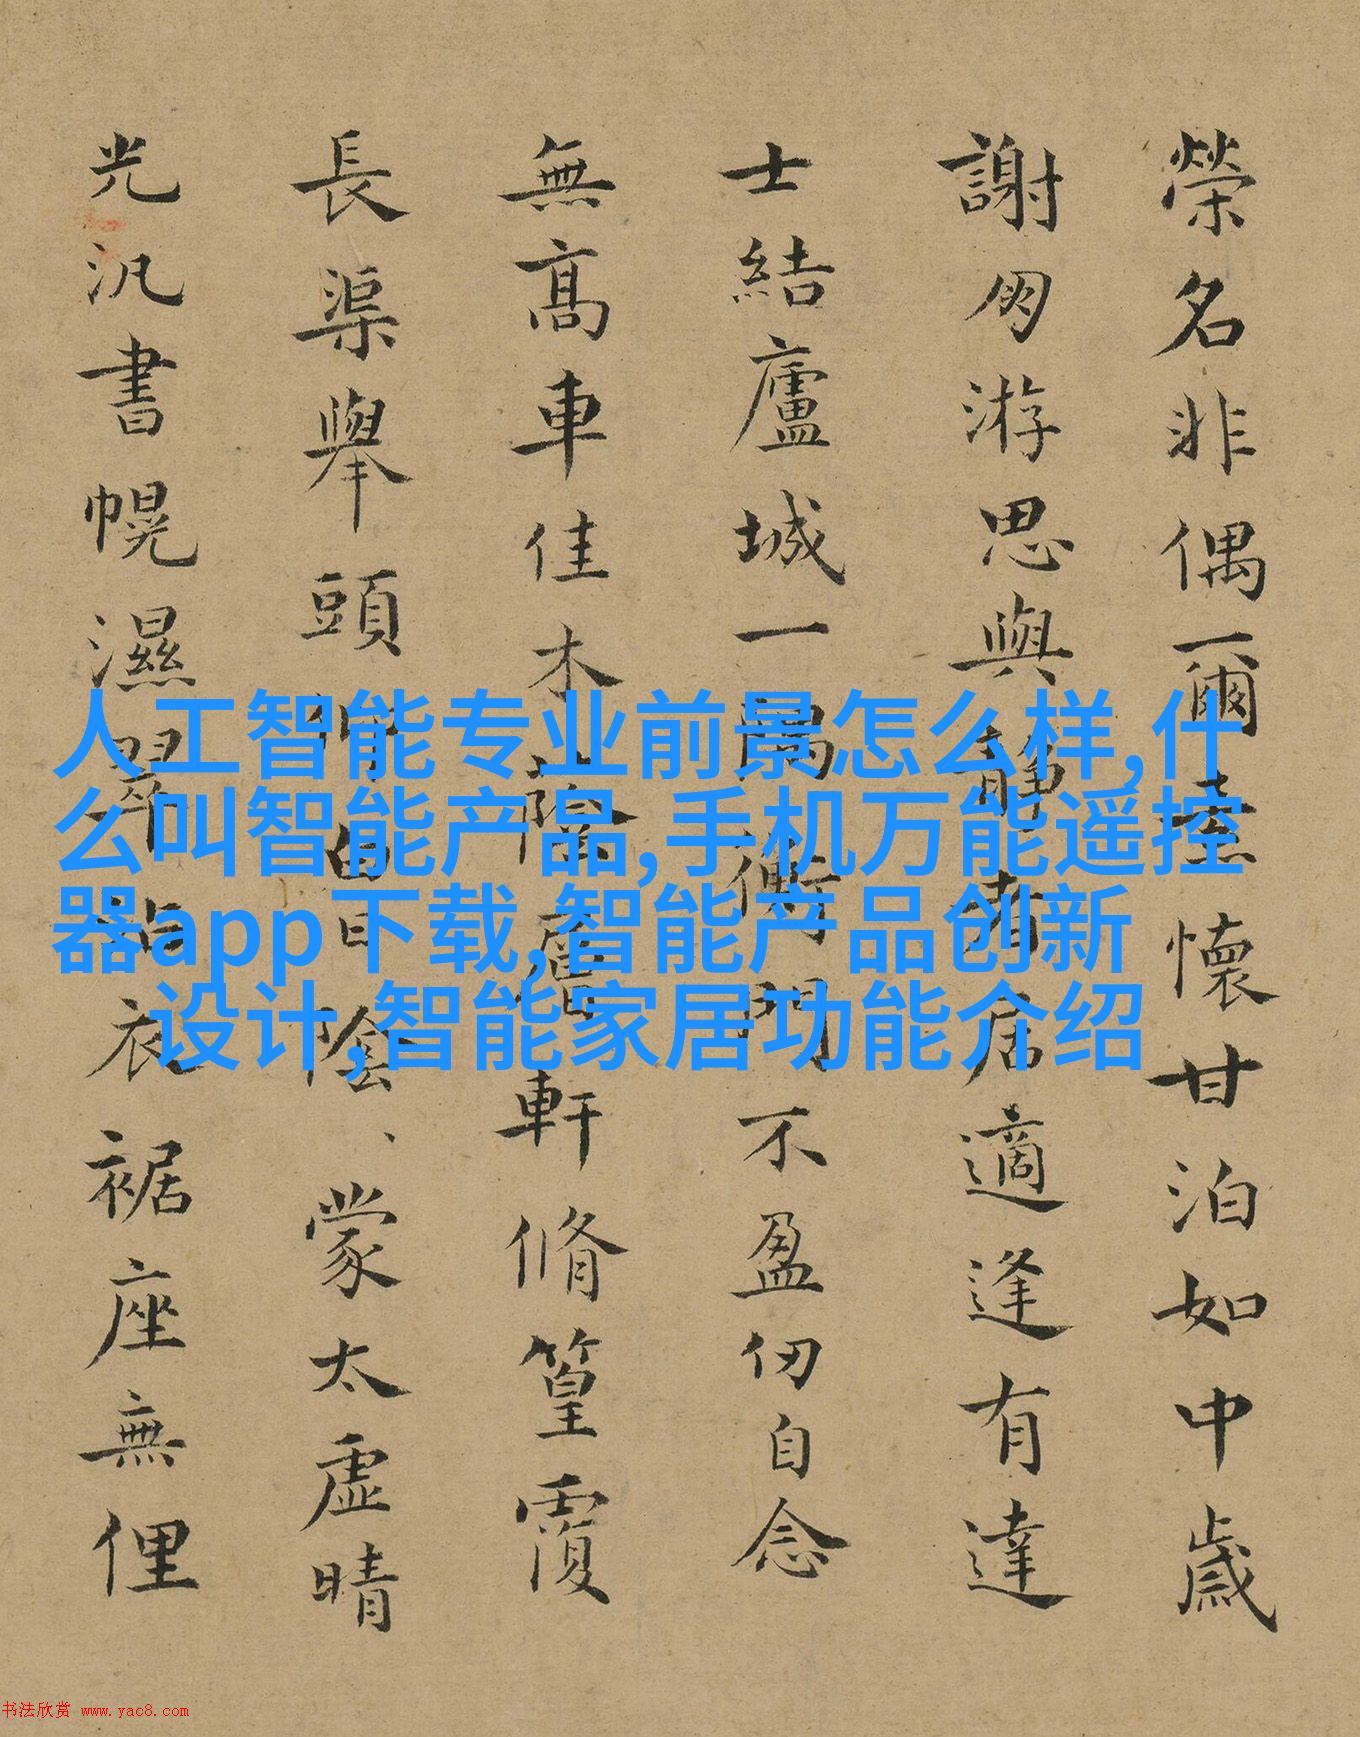 榮名非偶爾懷甘泊如中歲
謝朋游思與靜者居適逢有達
士結廬城一隅衡門不盈仞自念
無髙車佳木陰舊軒脩篁覆
長渠舉頭仰陰、蒙太虛晴
光汎書幌濕翠沾衣裾座無俚
人工智能专业前景怎么样,什
么叫智能产品,手机万能遥控
器app下载,智能产品创新
设计,智能家居功能介绍
书法欣赏 www.yac8.com